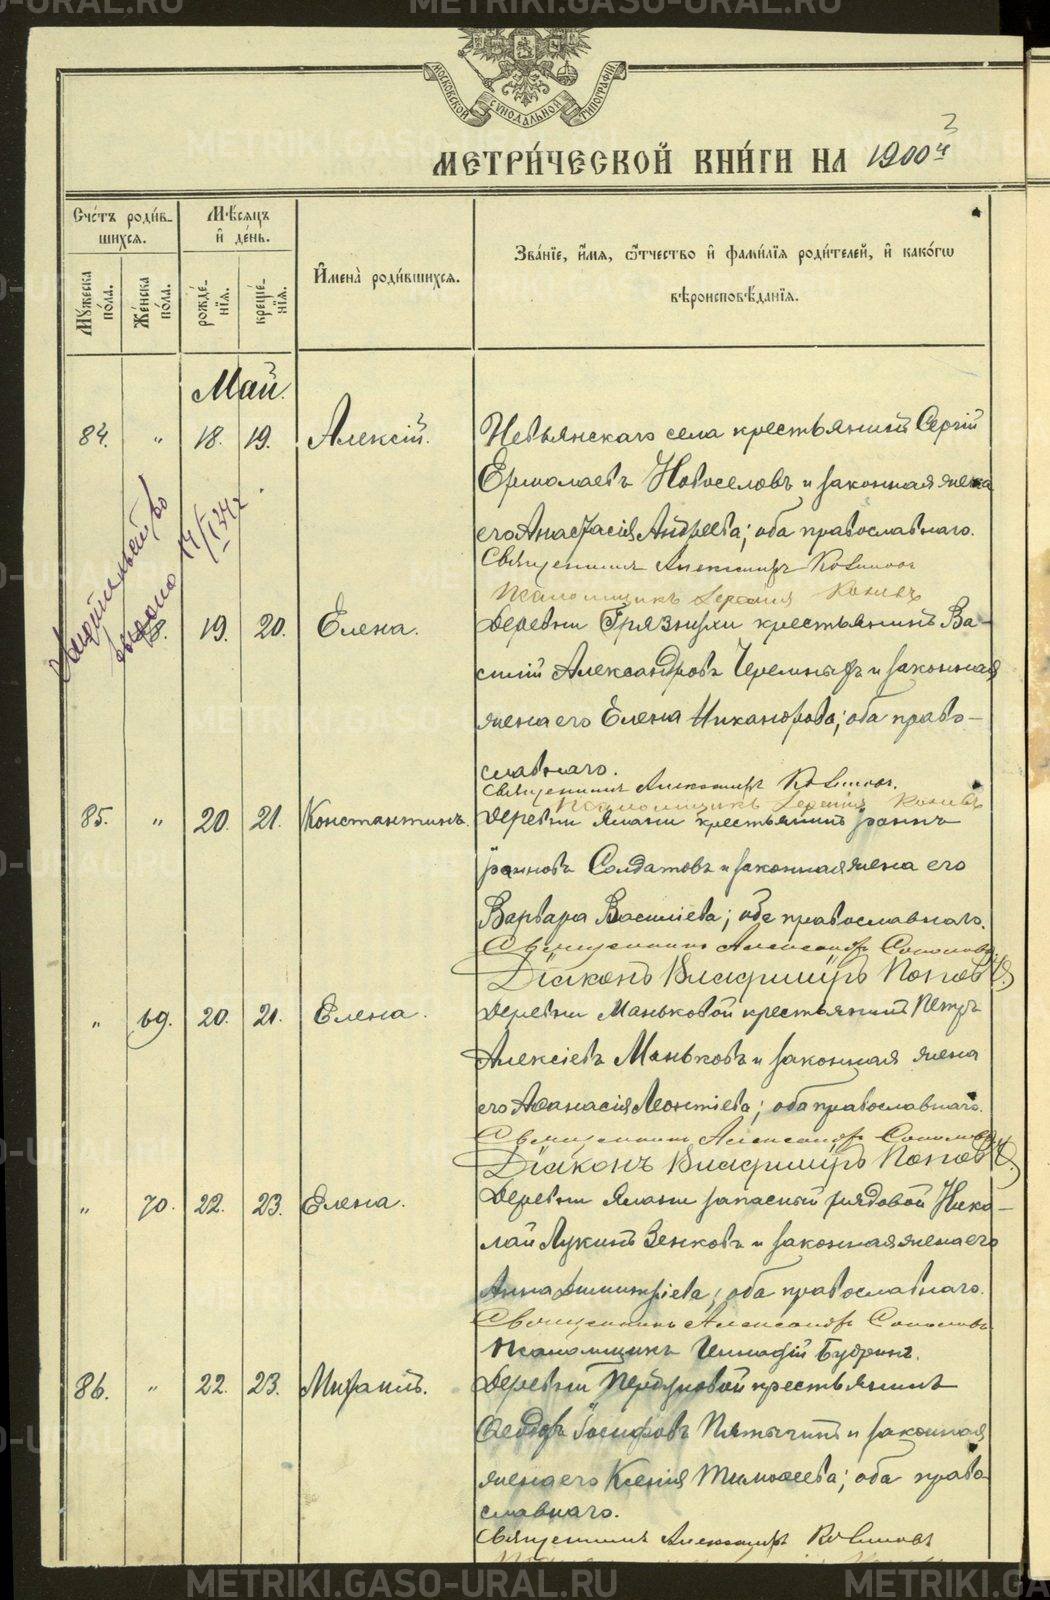 METRIKI.GASO-URAL.RU
МОСКОВСКОЙ СУНОДАЛЬНОЙ ТИПОГРАФІИ
МЕТРИ́ЧЕСКОЙ КНИ́ГИ НА 1900 й
3
Сче́тъ роди́в-
шихся.
Мѣ́сяцъ
и҆ де́нь.
Му́жеска
по́ла.
Же́нска
по́ла.
рожде́-
нїя.
креще́-
нїя.
И҆мена̀ роди́вшихся.
Зва́нїе, и҆́мя, ѻ҆́тчество и҆ фами́лїя роди́телей, и҆ како́гѡ
вѣроисповѣ́данїя.
Май.
84. " 18. 19. Алексій. Невьянскаго села крестьянинъ Сергій
Ермолаевъ Новоселовъ и законная жена
его Анастасія Андреева; оба православнаго.
Священникъ Александръ
Псаломщикъ
Свидѣтельство
выдано
68. 19. 20. Елена. Деревни Грязнухи крестьянинъ Ва-
силій Александровъ Черемныхъ и законная
жена его Елена Никанорова; оба право-
славнаго.
Священникъ Александръ
Псаломщикъ
85. " 20. 21. Константинъ. Деревни Ялани крестьянинъ Іоаннъ
Іоанновъ Солдатовъ и законная жена его
Варвара Васильева; обе православнаго.
Священникъ Александръ Соколовъ
Діаконъ Владиміръ Поповъ
" 69. 20. 21. Елена. Деревни Маньковой крестьянинъ Петръ
Алексіевъ Маньковъ и законная жена
его Аѳанасія Леонтіева; оба православнаго.
Священникъ Александръ Соколовъ
Діаконъ Владиміръ Поповъ
" 70. 22. 23. Елена. Деревни Ялани запасный рядовой Нико-
лай Лукинъ Зенковъ и законная жена его
Анна Димитріева; оба православнаго.
Священникъ Александръ Соколовъ
Псаломщикъ Геннадій Бубринъ.
86. " 22. 23. Михаилъ. Деревни крестьянинъ
Ѳеодоръ Іосифовъ и законная
жена его Ксенія Тимоѳеева; оба право-
славнаго.
Священникъ Александръ
METRIKI.GASO-URAL.RU